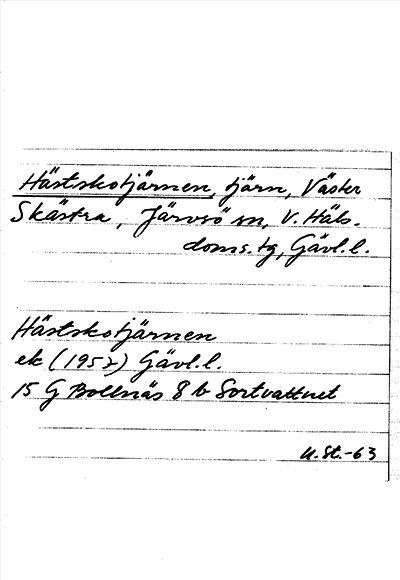 Hästskotjärnen, tjärn, Väster
Skästra, Järvsö sn, V. Häls.
doms. tg, Gävl. l.
Hästskotjärnen
ek (1952) Gävl. l.
15 G Bollnäs 8 b Sortvattnet
U. St. -63